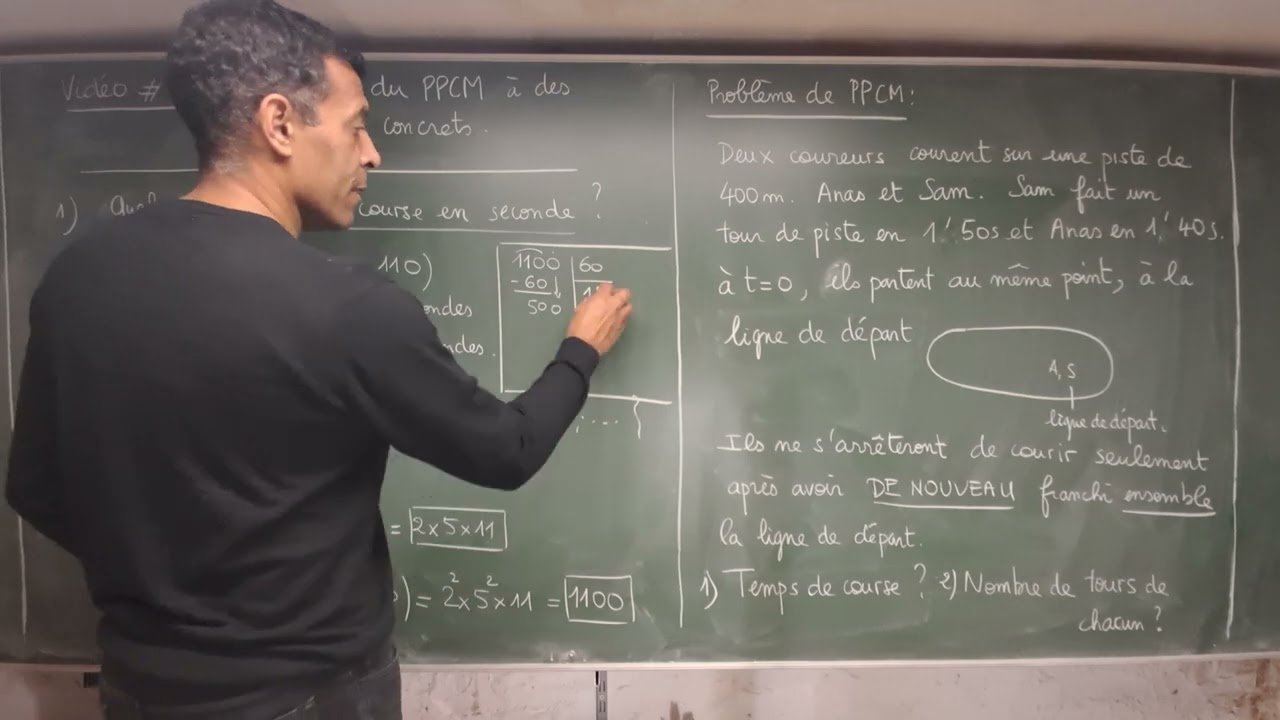 Vidéo # du PPCM à des
concrets.
1) course en seconde ?
110)
ondes
ndes.
1100 | 60
-60
500
= 2x5x11
) = 2²x5²x11 = 1100
Problème de PPCM:
Deux coureurs courent sur une piste de
400m. Anas et Sam. Sam fait un
tour de piste en 1' 50s et Anas en 1' 40s.
à t=0, ils partent au même point, à la
ligne de départ
A, S
ligne de départ.
Ils ne s'arrêteront de courir seulement
après avoir DE NOUVEAU franchi ensemble
la ligne de départ.
1) Temps de course ? 2) Nombre de tours de
chacun ?